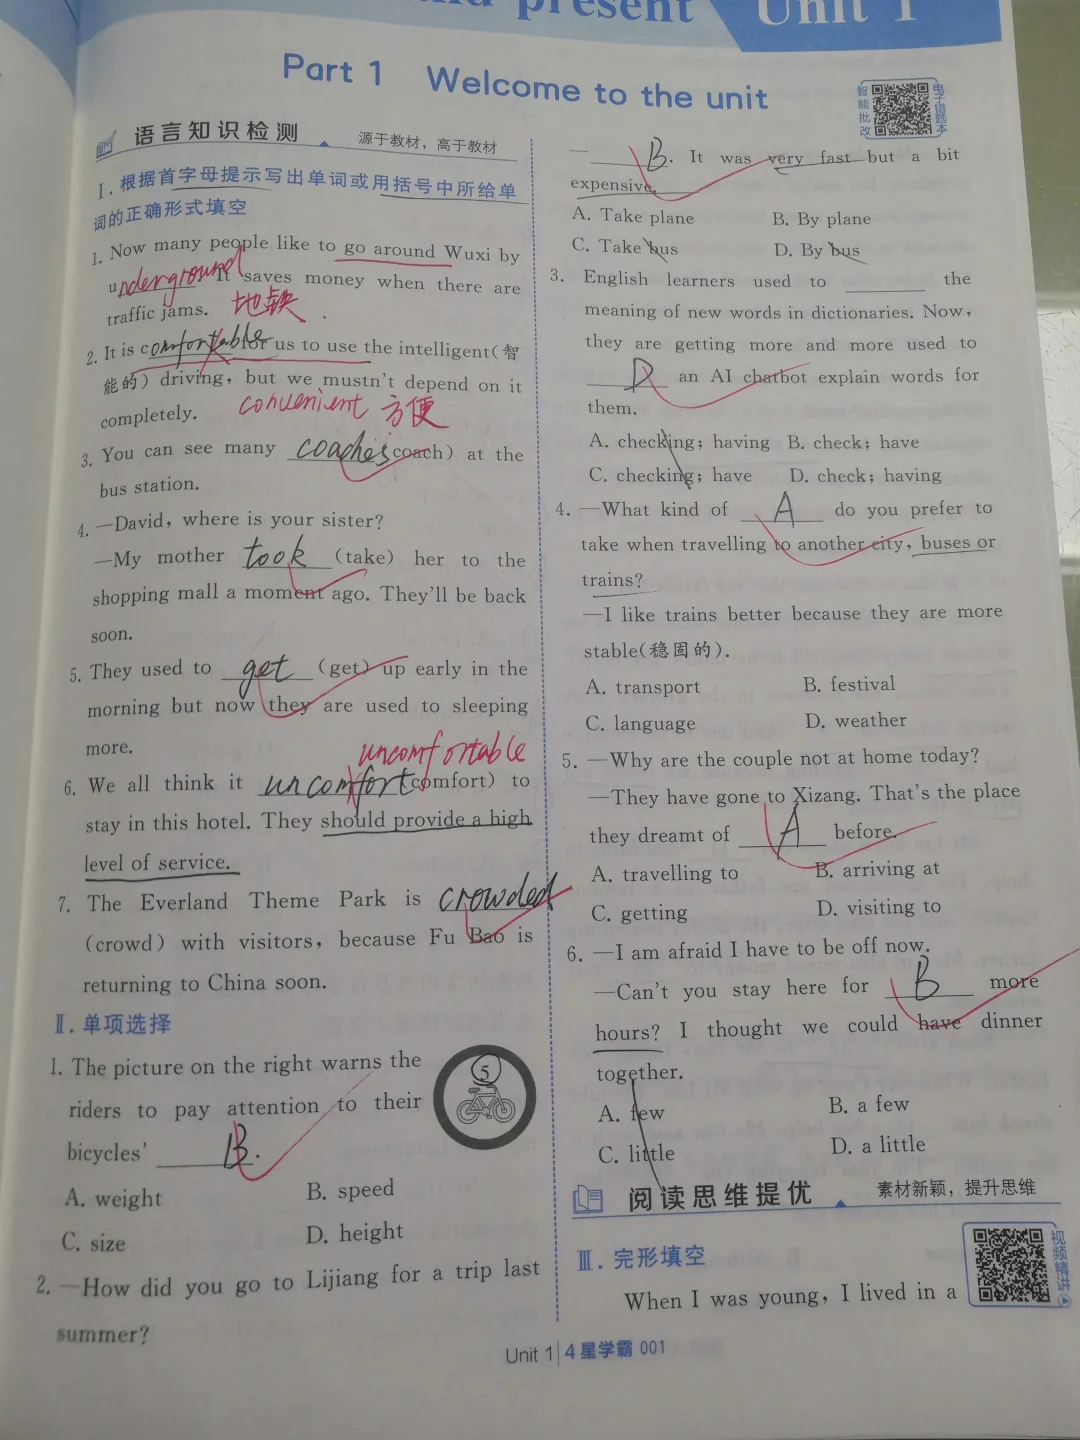 present
Unit 1
Part 1 Welcome to the unit
智能批改
电子错题本
语言知识检测 源于教材，高于教材
Ⅰ.根据首字母提示写出单词或用括号中所给单
词的正确形式填空
1. Now many people like to go around Wuxi by
underground. It saves money when there are
traffic jams. 地铁.
2. It is comfortable for us to use the intelligent(智
能的) driving, but we mustn't depend on it
completely. convenient 方便
3. You can see many coaches (coach) at the
bus station.
4. —David, where is your sister?
—My mother took (take) her to the
shopping mall a moment ago. They'll be back
soon.
5. They used to get (get) up early in the
morning but now they are used to sleeping
more.
uncomfortable
6. We all think it uncomfort (comfort) to
stay in this hotel. They should provide a high
level of service.
7. The Everland Theme Park is crowded
(crowd) with visitors, because Fu Bao is
returning to China soon.
Ⅱ.单项选择
1. The picture on the right warns the
riders to pay attention to their
bicycles' B.
5
A. weight B. speed
C. size D. height
2. —How did you go to Lijiang for a trip last
summer?
— B. It was very fast but a bit
expensive.
A. Take plane B. By plane
C. Take bus D. By bus
3. English learners used to ______ the
meaning of new words in dictionaries. Now,
they are getting more and more used to
D an AI chatbot explain words for
them.
A. checking; having B. check; have
C. checking; have D. check; having
4. —What kind of A do you prefer to
take when travelling to another city, buses or
trains?
—I like trains better because they are more
stable(稳固的).
A. transport B. festival
C. language D. weather
5. —Why are the couple not at home today?
—They have gone to Xizang. That's the place
they dreamt of A before.
A. travelling to B. arriving at
C. getting D. visiting to
6. —I am afraid I have to be off now.
—Can't you stay here for B more
hours? I thought we could have dinner
together.
A. few B. a few
C. little D. a little
阅读思维提优 素材新颖，提升思维
Ⅲ.完形填空
视频精讲
When I was young, I lived in a
Unit 1 | 4星学霸 001